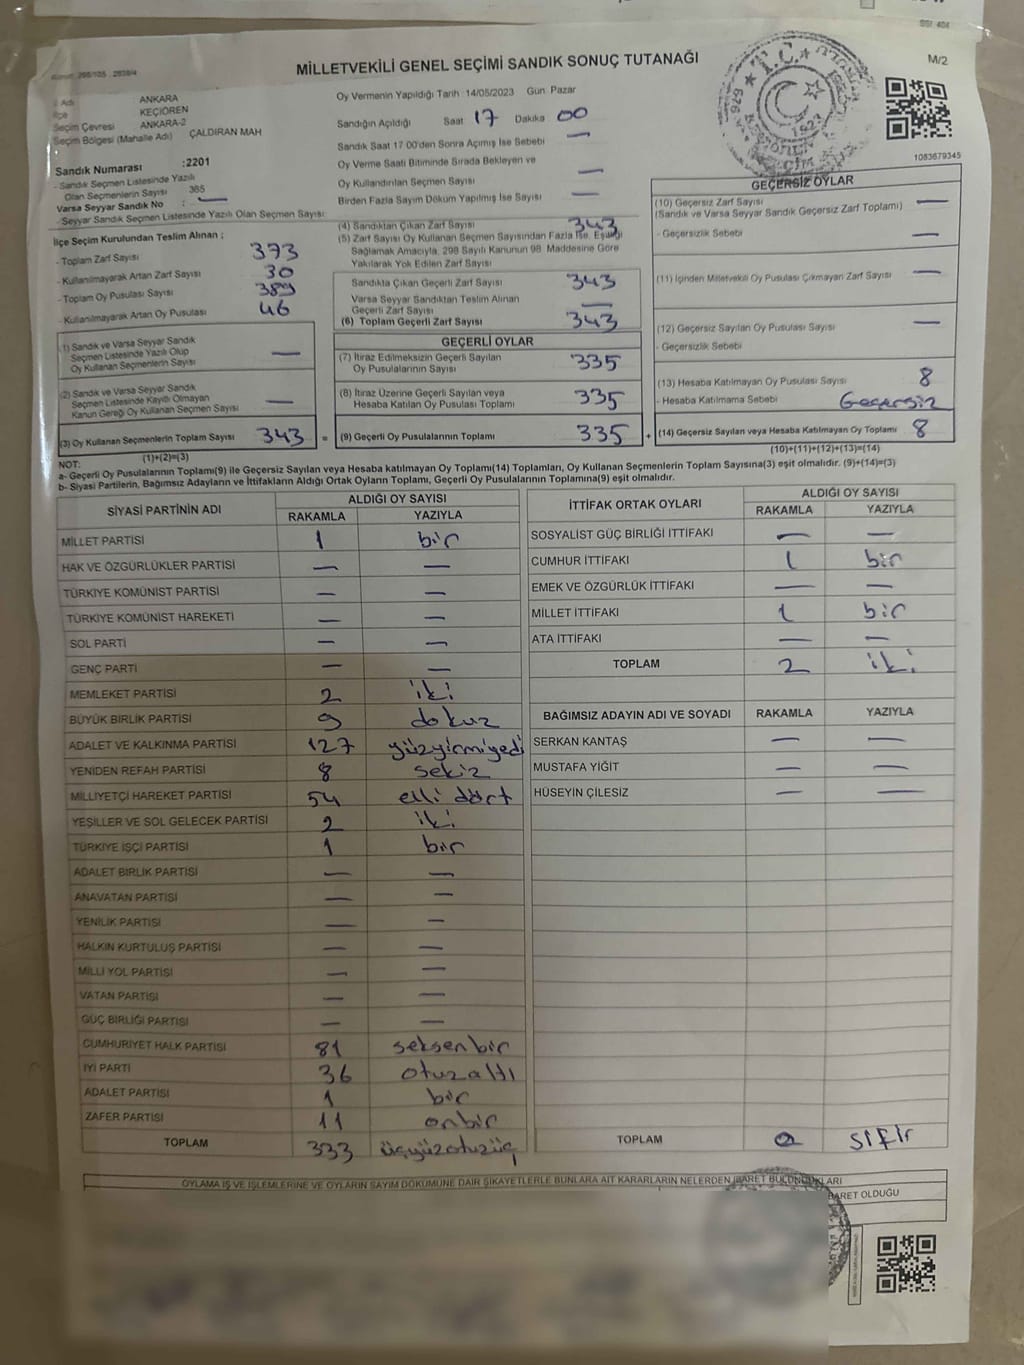 SSI 404
MİLLETVEKİLİ GENEL SEÇİMİ SANDIK SONUÇ TUTANAĞI
M/2
İl Adı ANKARA
İlçe KEÇİÖREN
Seçim Çevresi ANKARA-2
Seçim Bölgesi (Mahalle Adı) ÇALDIRAN MAH
Sandık Numarası :2201
- Sandık Seçmen Listesinde Yazılı
Olan Seçmenlerin Sayısı 365
Varsa Seyyar Sandık No : —
- Seyyar Sandık Seçmen Listesinde Yazılı Olan Seçmen Sayısı:
Oy Vermenin Yapıldığı Tarih 14/05/2023 Gün Pazar
Sandığın Açıldığı Saat 17 Dakika 00
Sandık Saat 17 00'den Sonra Açımış İse Sebebi —
Oy Verme Saati Bitiminde Sırada Bekleyen ve
Oy Kullandırılan Seçmen Sayısı —
Birden Fazla Sayım Döküm Yapılmış İse Sayısı —
1083679345
İlçe Seçim Kurulundan Teslim Alınan :
- Toplam Zarf Sayısı 373
- Kullanılmayarak Artan Zarf Sayısı 30
- Toplam Oy Pusulası Sayısı 389
- Kullanılmayarak Artan Oy Pusulası 46
(1) Sandık ve Varsa Seyyar Sandık
Seçmen Listesinde Yazılı Olup
Oy Kullanan Seçmenlerin Sayısı —
(2) Sandık ve Varsa Seyyar Sandık
Seçmen Listesinde Kayıtlı Olmayan
Kanun Gereği Oy Kullanan Seçmen Sayısı —
(3) Oy Kullanan Seçmenlerin Toplam Sayısı 343 =
(1)+(2)=(3)
(4) Sandıktan Çıkan Zarf Sayısı 343
(5) Zarf Sayısı Oy Kullanan Seçmen Sayısından Fazla İse, Eşitliği
Sağlamak Amacıyla, 298 Sayılı Kanunun 98. Maddesine Göre
Yakılarak Yok Edilen Zarf Sayısı
Sandıkta Çıkan Geçerli Zarf Sayısı 343
Varsa Seyyar Sandıktan Teslim Alınan
Geçerli Zarf Sayısı —
(6) Toplam Geçerli Zarf Sayısı 343
GEÇERLİ OYLAR
(7) İtiraz Edilmeksizin Geçerli Sayılan
Oy Pusulalarının Sayısı 335
(8) İtiraz Üzerine Geçerli Sayılan veya
Hesaba Katılan Oy Pusulası Toplamı 335
(9) Geçerli Oy Pusulalarının Toplamı 335 +
GEÇERSİZ OYLAR
(10) Geçersiz Zarf Sayısı —
(Sandık ve Varsa Seyyar Sandık Geçersiz Zarf Toplamı)
- Geçersizlik Sebebi —
(11) İçinden Milletvekili Oy Pusulası Çıkmayan Zarf Sayısı —
(12) Geçersiz Sayılan Oy Pusulası Sayısı —
- Geçersizlik Sebebi
(13) Hesaba Katılmayan Oy Pusulası Sayısı 8
- Hesaba Katılmama Sebebi Geçersiz
(14) Geçersiz Sayılan veya Hesaba Katılmayan Oy Toplamı 8
(10)+(11)+(12)+(13)=(14)
NOT:
a- Geçerli Oy Pusulalarının Toplamı(9) ile Geçersiz Sayılan veya Hesaba katılmayan Oy Toplamı(14) Toplamları, Oy Kullanan Seçmenlerin Toplam Sayısına(3) eşit olmalıdır. (9)+(14)=(3)
b- Siyasi Partilerin, Bağımsız Adayların ve İttifakların Aldığı Ortak Oyların Toplamı, Geçerli Oy Pusulalarının Toplamına(9) eşit olmalıdır.
SİYASİ PARTİNİN ADI ALDIĞI OY SAYISI
RAKAMLA YAZIYLA
MİLLET PARTİSİ 1 bir
HAK VE ÖZGÜRLÜKLER PARTİSİ — —
TÜRKİYE KOMÜNİST PARTİSİ — —
TÜRKİYE KOMÜNİST HAREKETİ — —
SOL PARTİ — —
GENÇ PARTİ — —
MEMLEKET PARTİSİ 2 iki
BÜYÜK BİRLİK PARTİSİ 9 dokuz
ADALET VE KALKINMA PARTİSİ 127 yüzyirmiyedi
YENİDEN REFAH PARTİSİ 8 sekiz
MİLLİYETÇİ HAREKET PARTİSİ 54 elli dört
YEŞİLLER VE SOL GELECEK PARTİSİ 2 iki
TÜRKİYE İŞÇİ PARTİSİ 1 bir
ADALET BİRLİK PARTİSİ — —
ANAVATAN PARTİSİ — —
YENİLİK PARTİSİ — —
HALKIN KURTULUŞ PARTİSİ — —
MİLLİ YOL PARTİSİ — —
VATAN PARTİSİ — —
GÜÇ BİRLİĞİ PARTİSİ — —
CUMHURİYET HALK PARTİSİ 81 seksen bir
İYİ PARTİ 36 otuz altı
ADALET PARTİSİ 1 bir
ZAFER PARTİSİ 11 onbir
TOPLAM 333 üçyüzotuzüç
İTTİFAK ORTAK OYLARI ALDIĞI OY SAYISI
RAKAMLA YAZIYLA
SOSYALİST GÜÇ BİRLİĞİ İTTİFAKI — —
CUMHUR İTTİFAKI 1 bir
EMEK VE ÖZGÜRLÜK İTTİFAKI — —
MİLLET İTTİFAKI 1 bir
ATA İTTİFAKI — —
TOPLAM 2 iki
BAĞIMSIZ ADAYIN ADI VE SOYADI RAKAMLA YAZIYLA
SERKAN KANTAŞ — —
MUSTAFA YİĞİT — —
HÜSEYİN ÇİLESİZ — —
TOPLAM 0 sıfır
OYLAMA İŞ VE İŞLEMLERİNE VE OYLARIN SAYIM DÖKÜMÜNE DAİR ŞİKAYETLERLE BUNLARA AİT KARARLARIN NELERDEN İBARET BULUNDUKLARI
BARET OLDUĞU